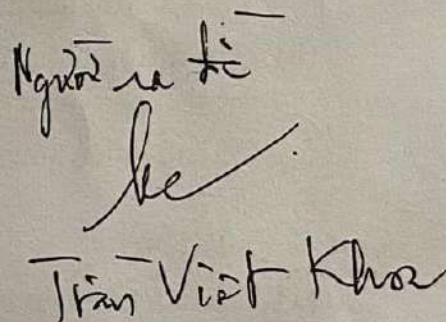 Người ra đề
Trần Việt Khoa